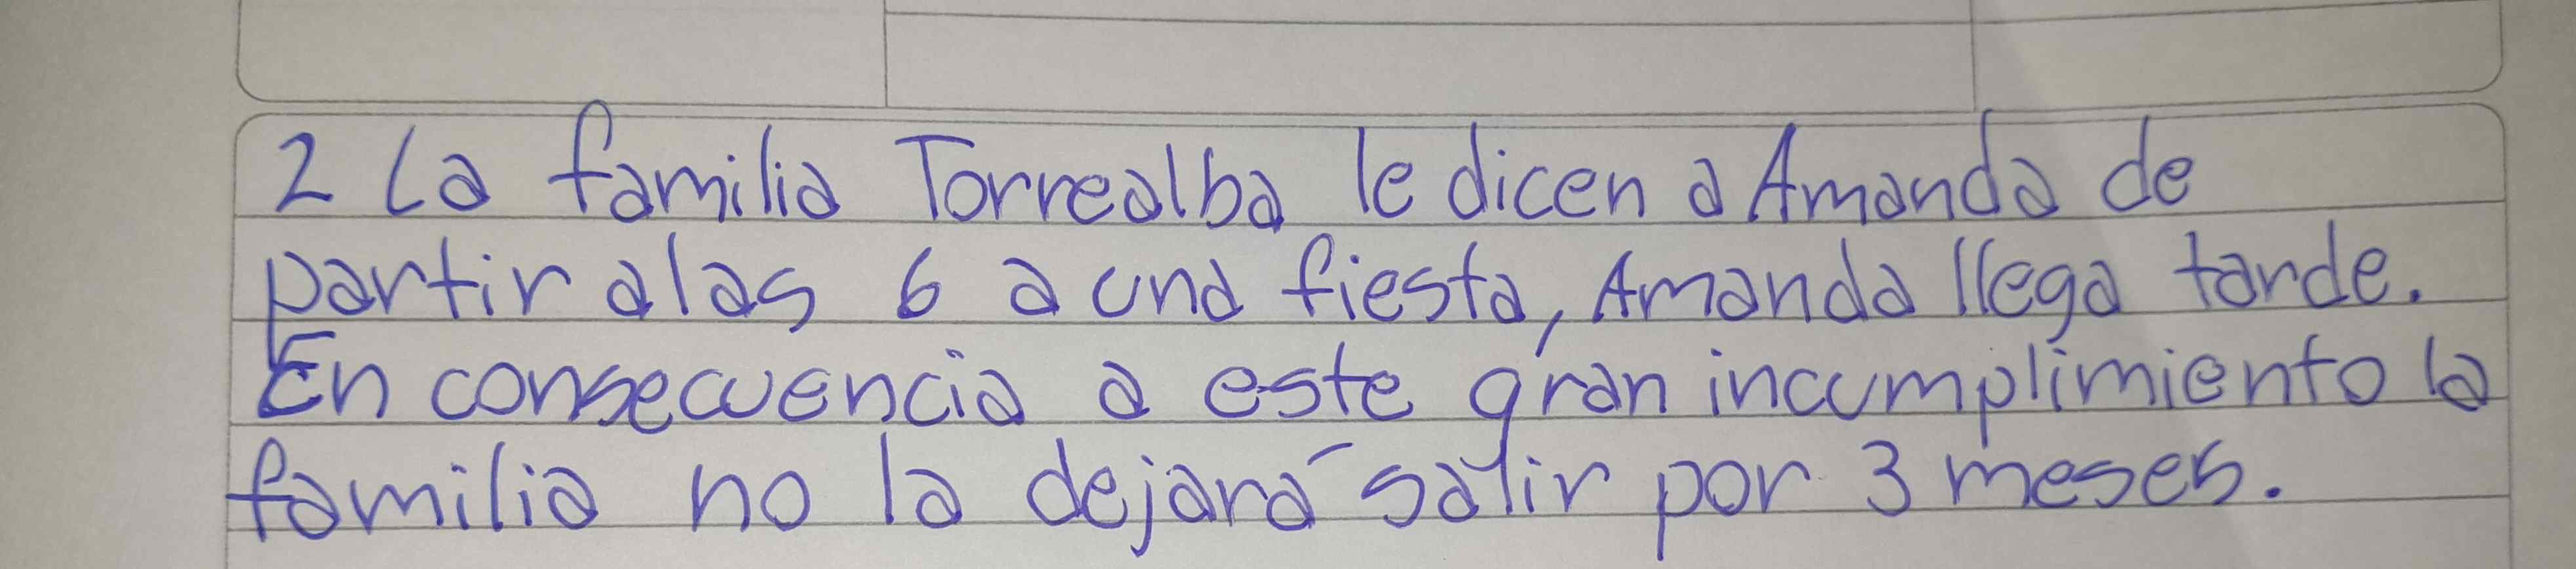 2 La familia Torrealba le dicen a Amanda de
partir alas 6 a una fiesta, Amanda llega tarde.
En consecuencia a este gran incumplimiento la
familia no la dejará salir por 3 meses.